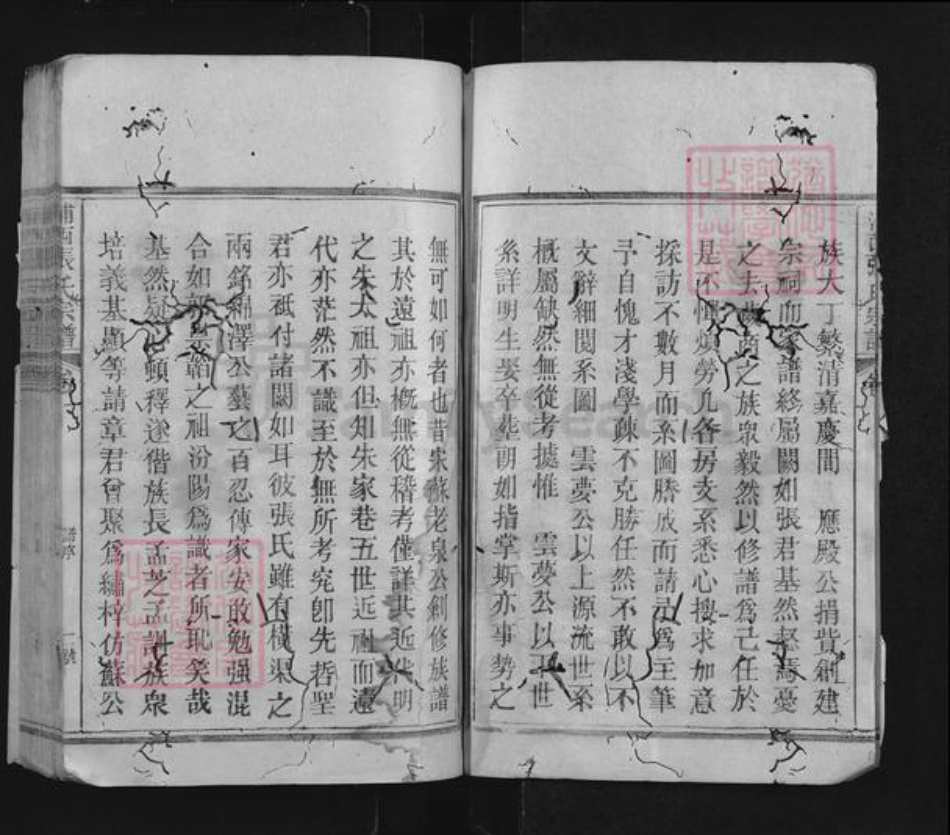 族大丁繁清嘉慶間 應殿公捐貲創建
宗祠而家譜終屬闕如張君基然惄焉憂
之去歲商之族眾毅然以修譜為己任於
是不憚煩勞凡各房支系悉心搜求加意
採訪不數月而系圖謄成而請予為主筆
予自愧才淺學疎不克勝任然不敢以不
文辭細閱系圖 雲夢公以上源流世系
概屬缺然無從考據惟 雲夢公以下世
系詳明生娶卒塟朗如指掌斯亦事勢之
無可如何者也昔宋蘇老泉公創修族譜
其於遠祖亦概無從稽考僅詳其近代明
之朱太祖亦但知朱家巷五世近祖而遠
代亦茫然不識至於無所考究卽先哲聖
君亦祗付諸闕如耳彼張氏雖有橫渠之
兩銘綿澤公藝之百忍傳家安敢勉强混
合如郭崇韜之祖汾陽為識者所恥笑哉
基然疑頓釋遂偕族長孟芝孟訓族眾
培義基顯等請章君曾聚為繡梓仿蘇公
浦西張氏宗譜
譜序